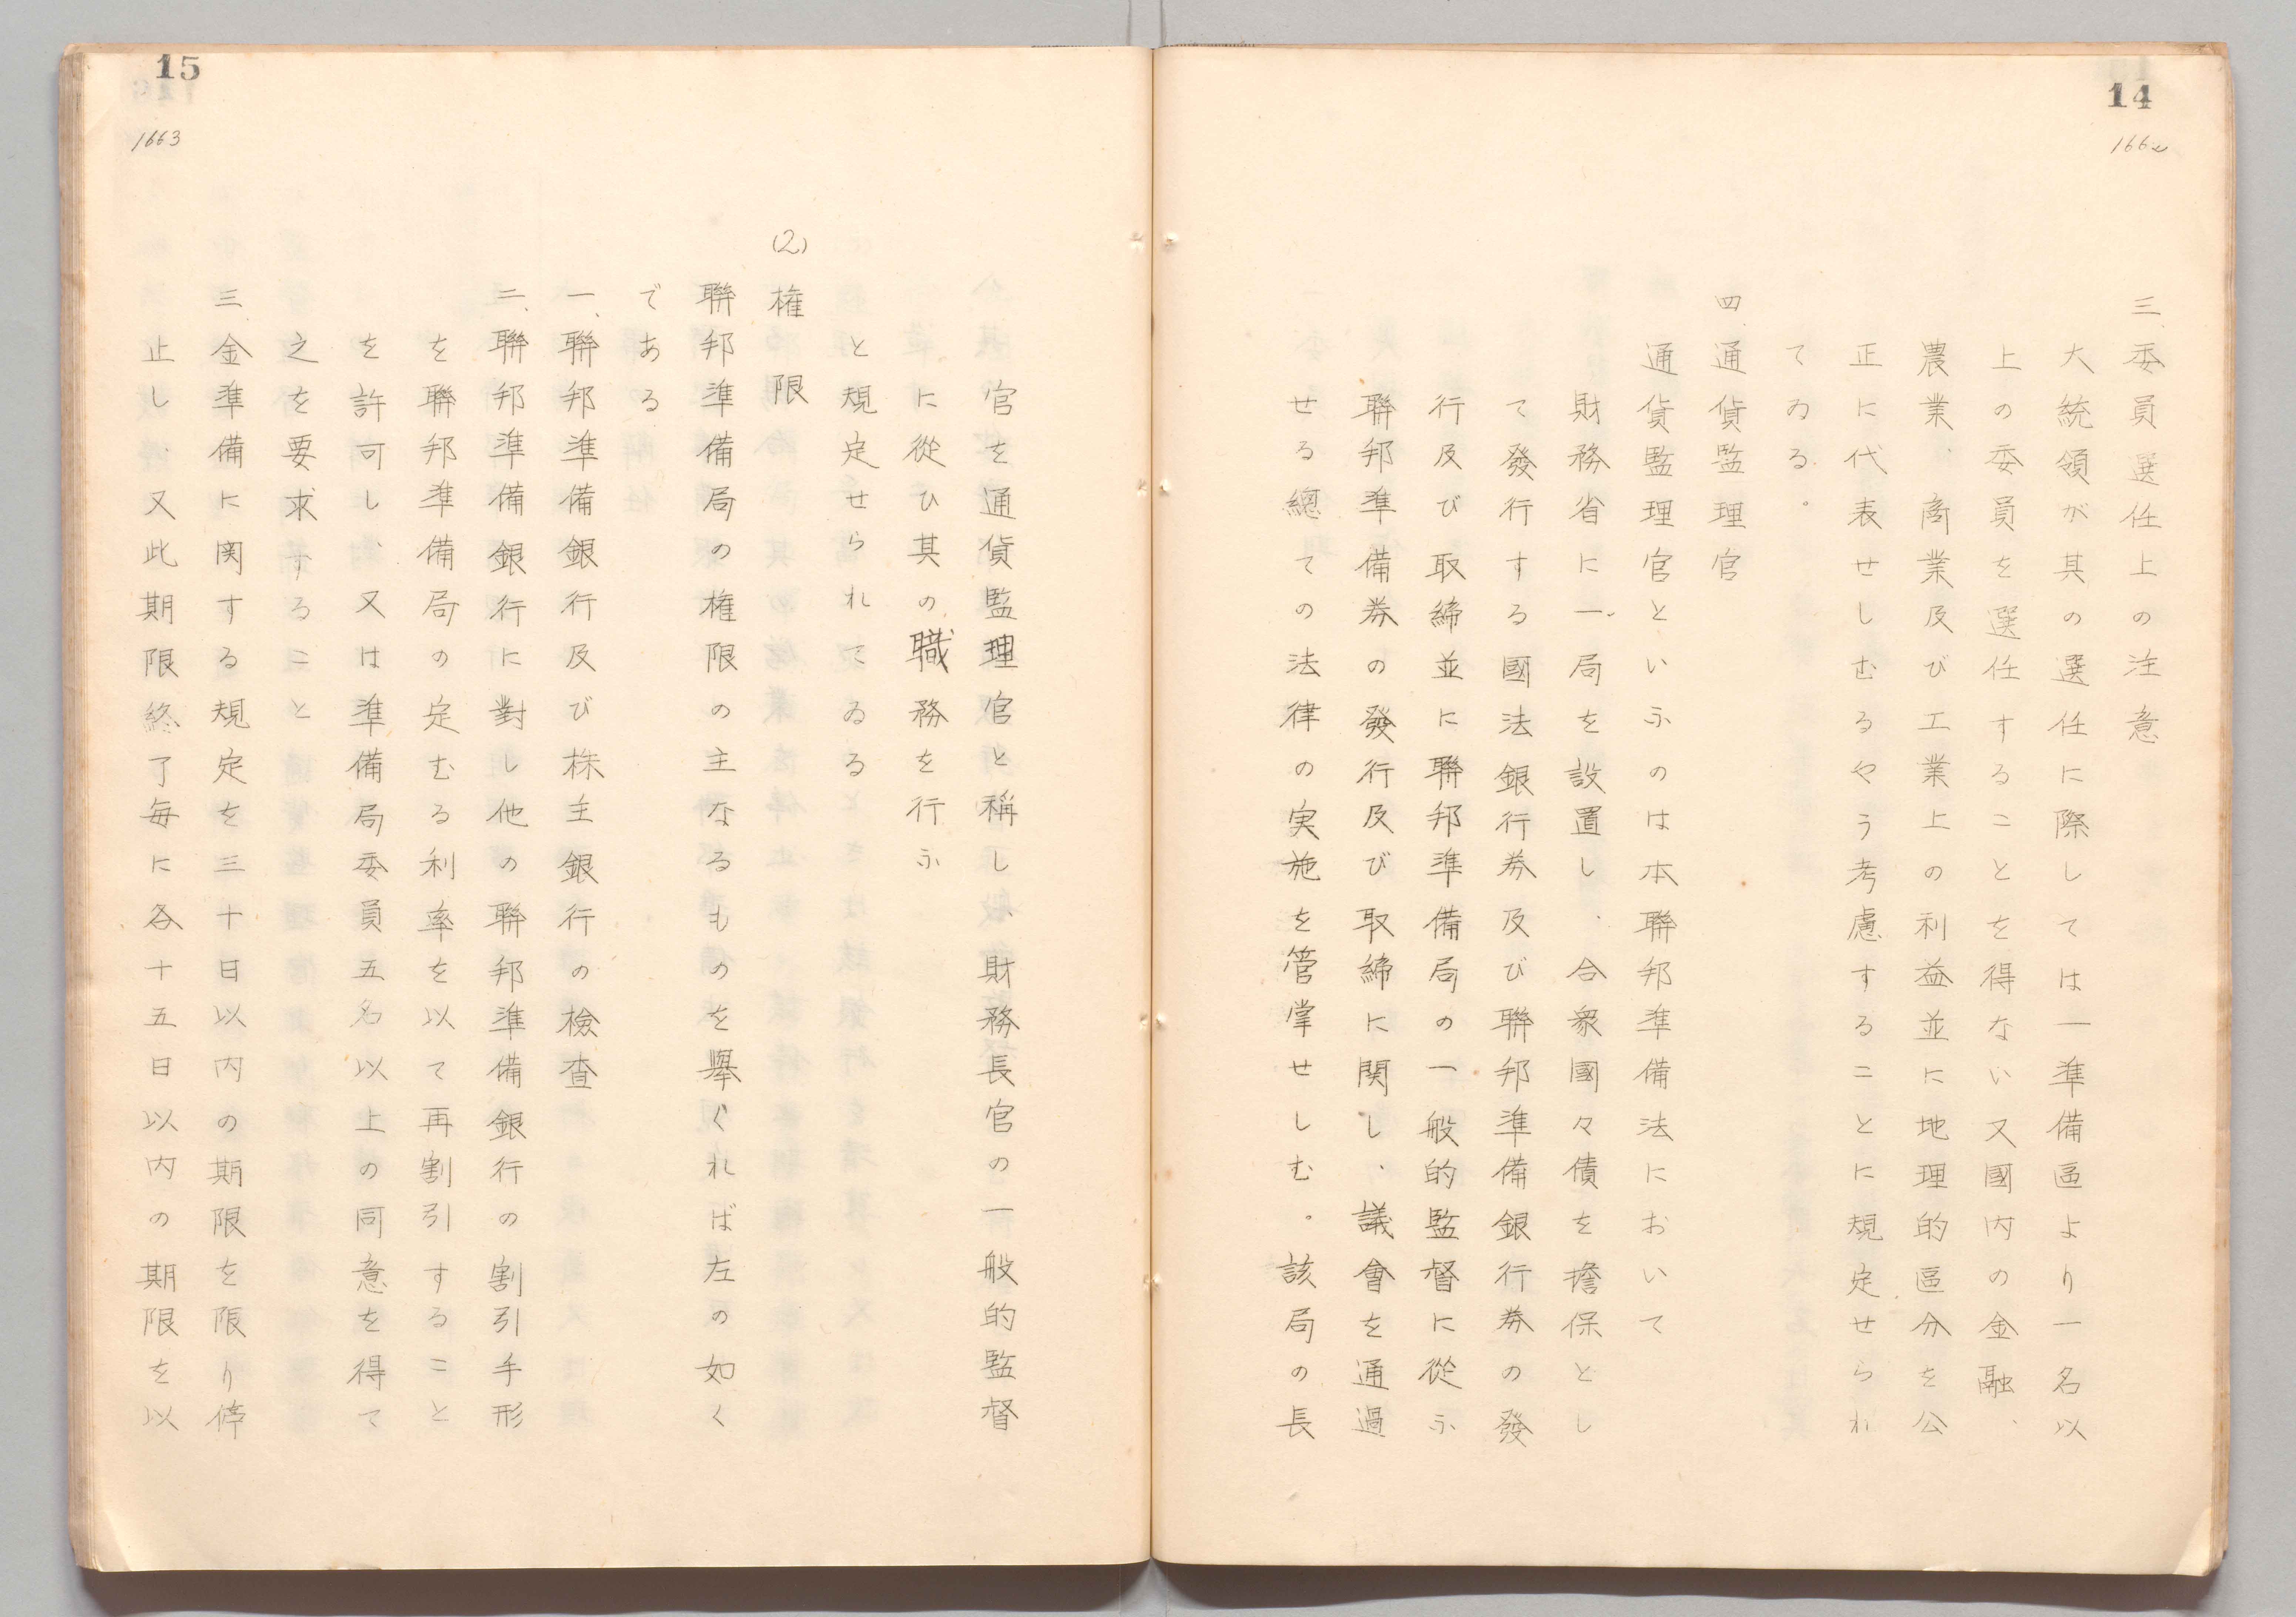 14
1662
三、委員選任上の注意
大統領が其の選任に際しては一準備區より一名以
上の委員を選任することを得ない又國内の金融、
農業、商業及び工業上の利益並に地理的區分を公
正に代表せしむるやう考慮することに規定せられ
てゐる。
四、通貨監理官
通貨監理官といふのは本聯邦準備法において
財務省に一局を設置し、合衆國々債を擔保とし
て發行する國法銀行券及び聯邦準備銀行券の發
行及び取締並に聯邦準備局の一般的監督に從ふ
聯邦準備券の發行及び取締に関し、議會を通過
せる總ての法律の実施を管掌せしむ。該局の長
15
1663
官を通貨監理官と稱し、財務長官の一般的監督
に從ひ其の職務を行ふ
と規定せられてゐる
(2) 権限
聯邦準備局の権限の主なるものを擧ぐれば左の如く
である
一、聯邦準備銀行及び株主銀行の檢査
二、聯邦準備銀行に對し他の聯邦準備銀行の割引手形
を聯邦準備局の定むる利率を以て再割引すること
を許可し、又は準備局委員五名以上の同意を得て
之を要求すること
三、金準備に関する規定を三十日以内の期限を限り停
止し、又此期限終了毎に各十五日以内の期限を以